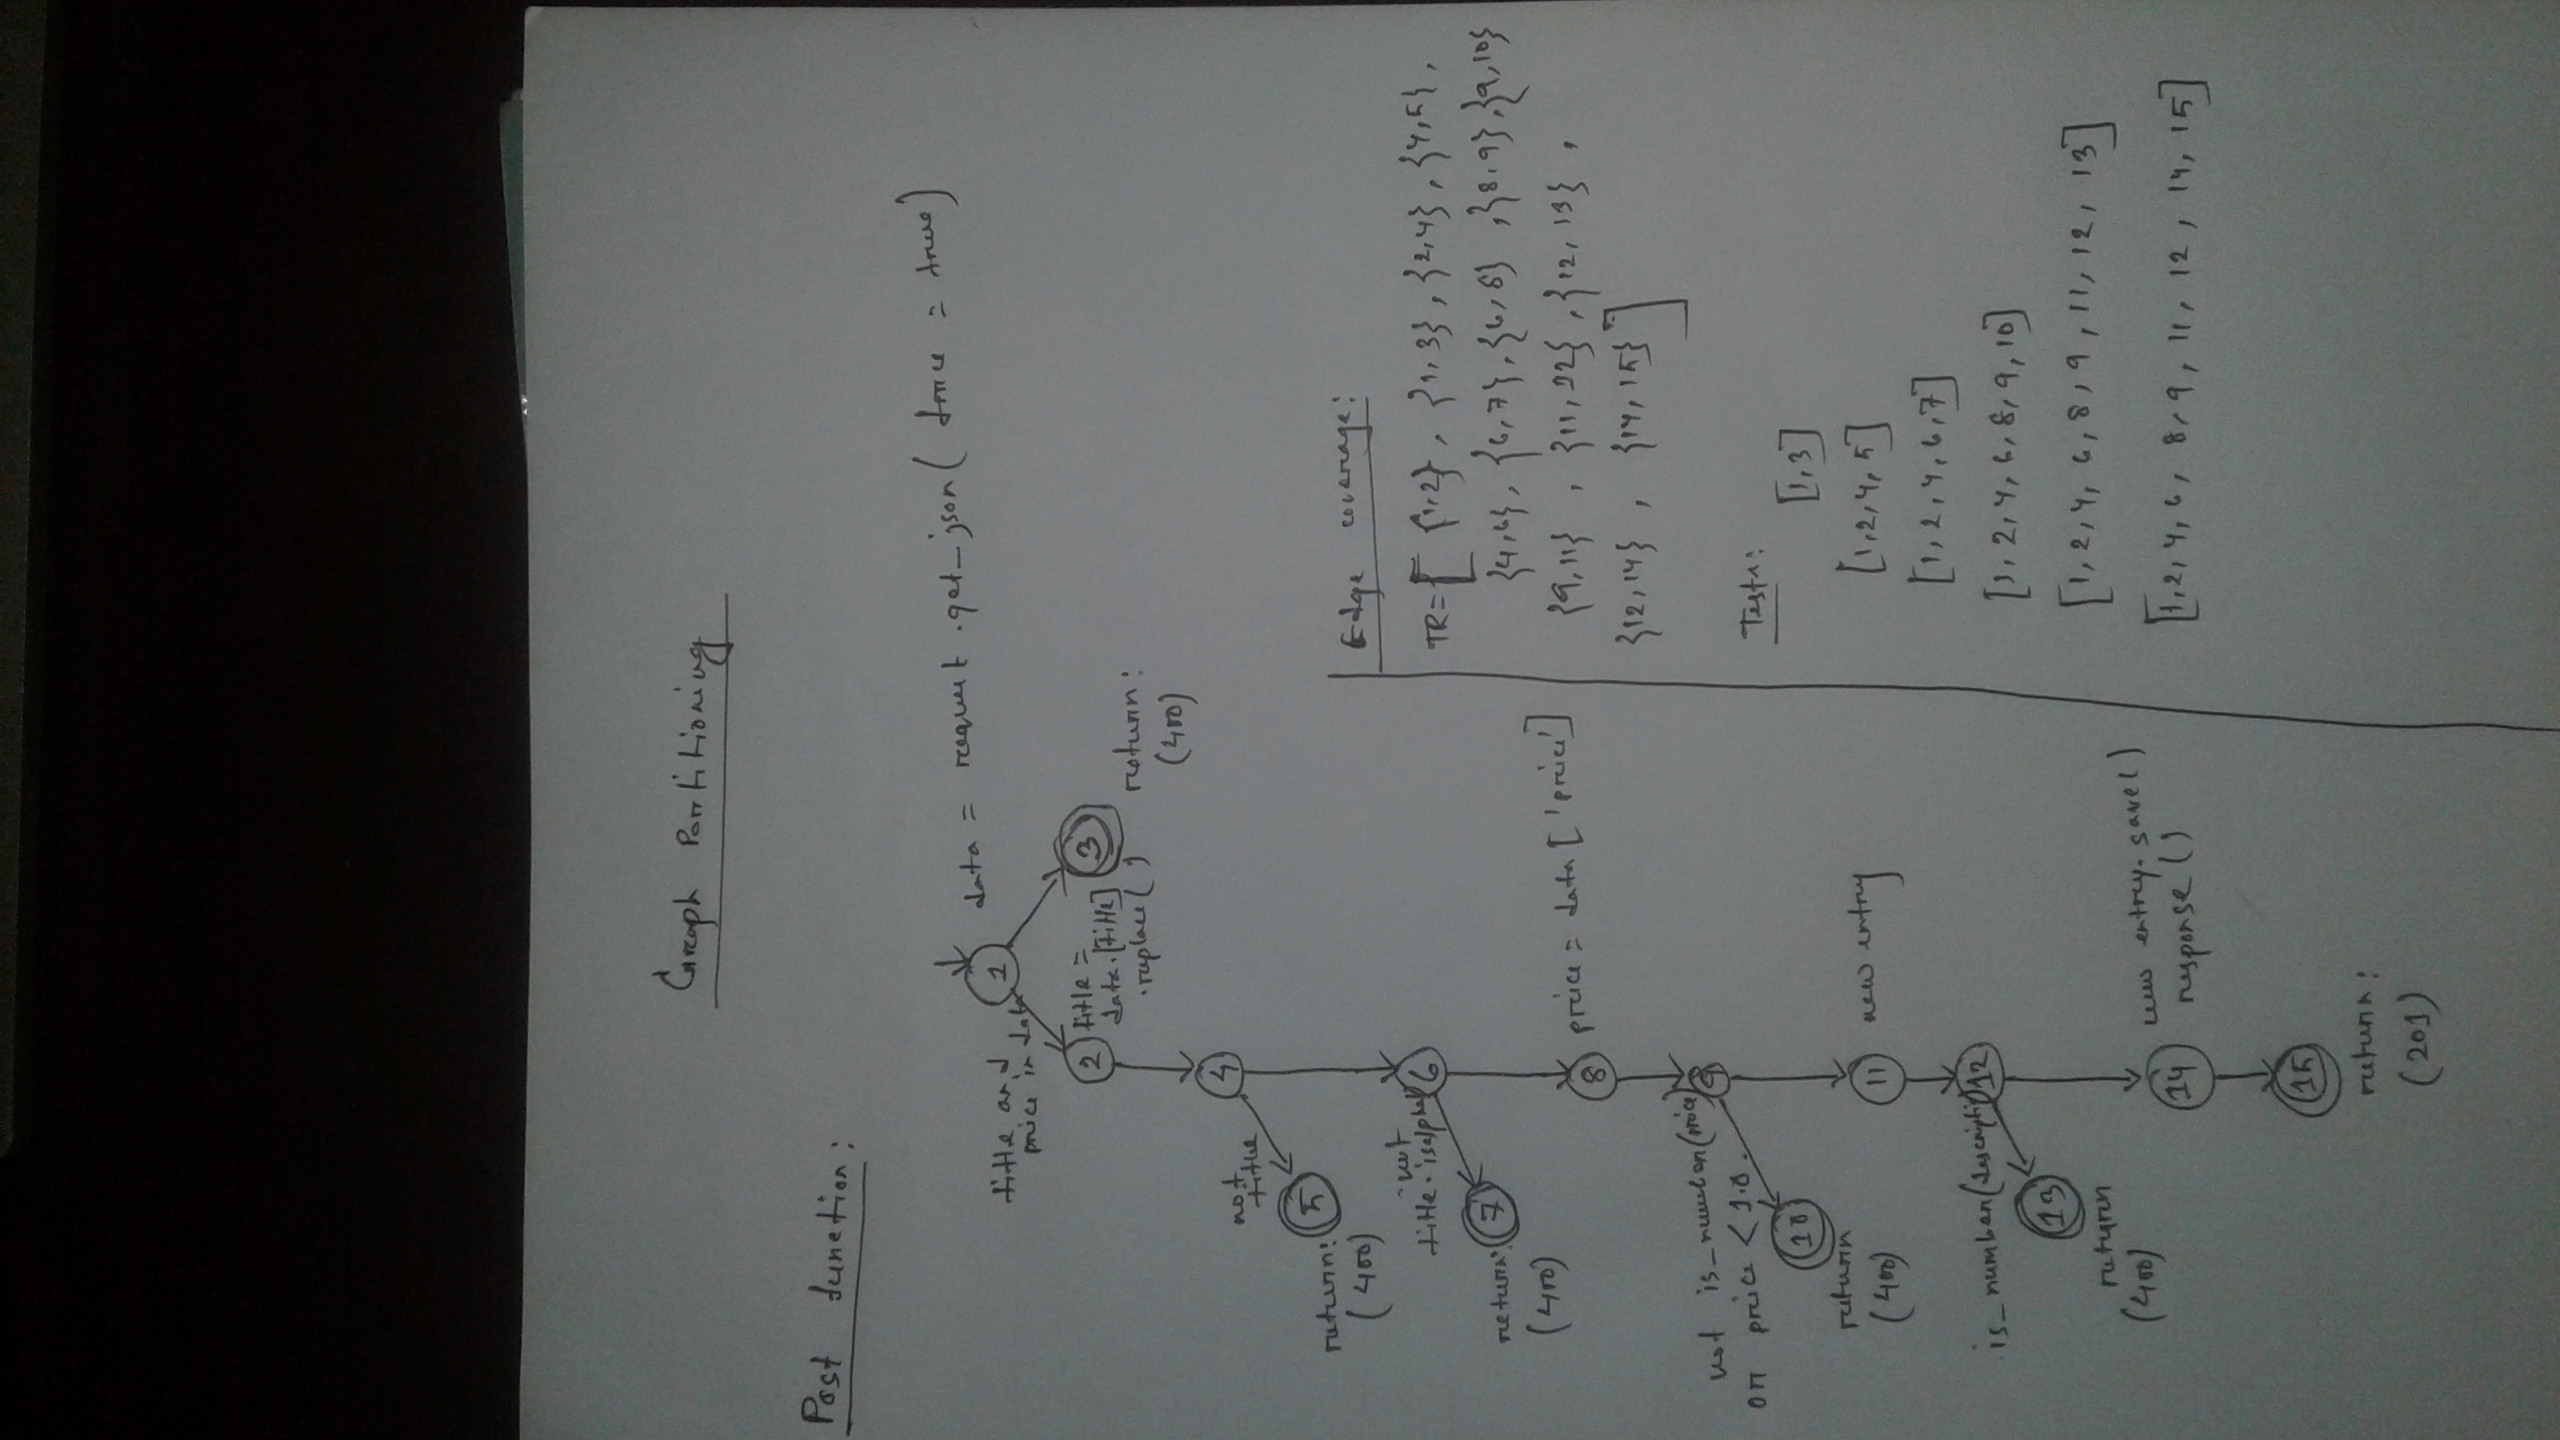 Graph Partitioning
Post function:
data = request.get_json( force = true)
1
title and
price in data
2
title =
data.[title]
.replace( )
3
return:
(400)
4
not
title
5
return:
(400)
6
not
title.isalpha
7
return:
(400)
8
price = data ['price']
9
not is_number(price)
or price < 1.0.
10
return
(400)
11
new entry
12
is_number(description)
13
return
(400)
14
new entry.save()
response ()
15
return:
(201)
Edge coverage:
TR=[ {1,2}, {1,3}, {2,4}, {4,5},
{4,6}, {6,7}, {6,8} ,{8,9},{9,10}
{9,11} , {11,12} , {12,13} ,
{12,14} , {14,15} ]
Tests:
[1,3]
[1,2,4,5]
[1,2,4,6,7]
[1,2,4,6,8,9,10]
[1,2,4,6,8,9,11,12,13]
[1,2,4,6,8,9,11,12,14,15]